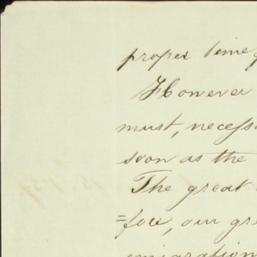 proper time
However
must, necess
soon as the
The great
=fore, our gr
emigration